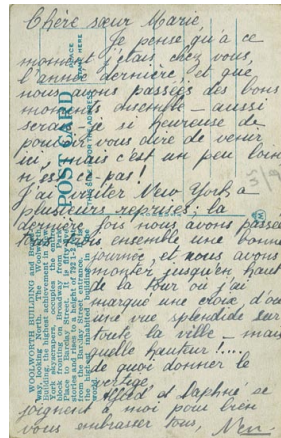 Chère sœur Marie
Je pense qu'à ce
moment j'étais chez vous,
l'année dernière, et que
nous avons passées des bons
moments ensemble – aussi
serai-je si heureuse de
pouvoir vous dire de venir
ici, mais c'est un peu loin
n'est ce pas!
J'ai visiter New York a
plusieurs reprises; la
dernière fois nous avons passés
tous ensemble une bonne
journée, et nous avons
monter jusqu'en haut
de la tour où j'ai
marqué une croix d'où
une vue splendide sur
toute la ville – mais
quelle hauteur!....
de quoi donner le
vertige.
Alfred et Daphné se
joignent à moi pour bien
vous embrasser tous,
POST CARD
THIS SIDE IS FOR THE ADDRESS
PLACE
STAMP HERE
WOOLWORTH BUILDING and Broad-
way looking North. The Woolworth
Building, the highest achievement in New
York skyscrapers, occupies the entire
frontage on Broadway from Park
Place to Barclay Street. It is fifty-five
stories and rises to a height of 792 feet
from the Barclay Street entrance,
the highest inhabited building in the
world.